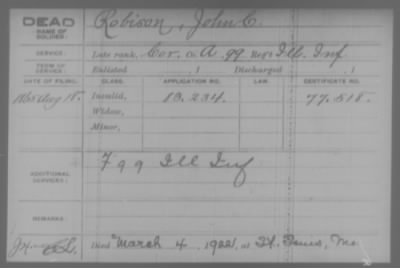 DEAD Robison, John C.
NAME OF SOLDIER:
SERVICE: Late rank, Cor. Co. A. 99 Reg't Ill. Inf.
TERM OF SERVICE: Enlisted , 1 Discharged , 1
DATE OF FILING. CLASS. APPLICATION NO. LAW. CERTIFICATE NO.
1865 Aug 18. Invalid, 83.234. 77.518.
Widow,
Minor,
ADDITIONAL SERVICES: F 99 Ill Inf
REMARKS:
Died March 4, 1922, at St. Louis, Mo.